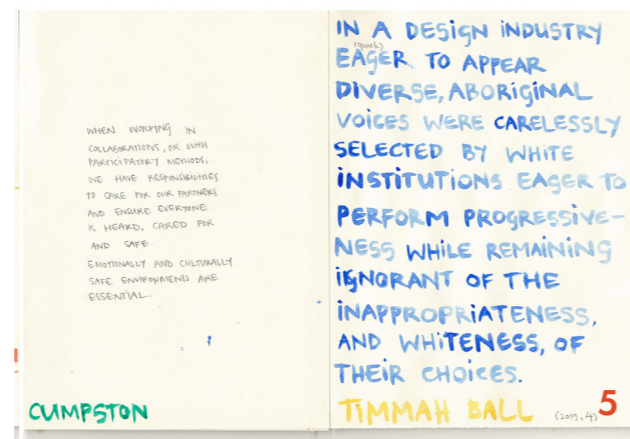 WHEN WORKING IN
COLLABORATIONS, OR WITH
PARTICIPATORY METHODS,
WE HAVE RESPONSIBILITIES
TO CARE FOR OUR PARTNERS
AND ENSURE EVERYONE
IS HEARD, CARED FOR
AND SAFE.
EMOTIONALLY AND CULTURALLY
SAFE ENVIRONMENTS ARE
ESSENTIAL.
CUMPSTON
IN A DESIGN INDUSTRY
(quick)
EAGER TO APPEAR
DIVERSE, ABORIGINAL
VOICES WERE CARELESSLY
SELECTED BY WHITE
INSTITUTIONS EAGER TO
PERFORM PROGRESSIVE-
NESS WHILE REMAINING
IGNORANT OF THE
INAPPROPRIATENESS,
AND WHITENESS, OF
THEIR CHOICES.
TIMMAH BALL (2019, 4) 5